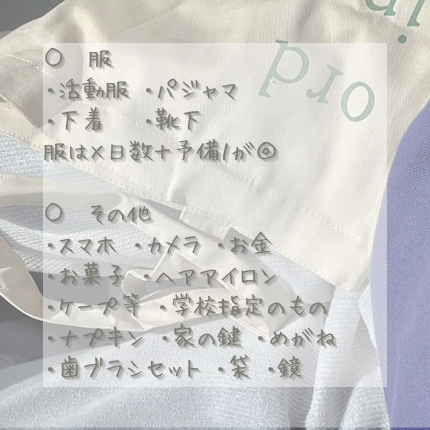 ○ 服
・活動服 ・パジャマ
・下着 ・靴下
服は×日数+予備1が◎
○ その他
・スマホ ・カメラ ・お金
・お菓子 ・ヘアアイロン
・ケープ等 ・学校指定のもの
・ナプキン ・家の鍵 ・めがね
・歯ブラシセット ・袋 ・鏡
ord